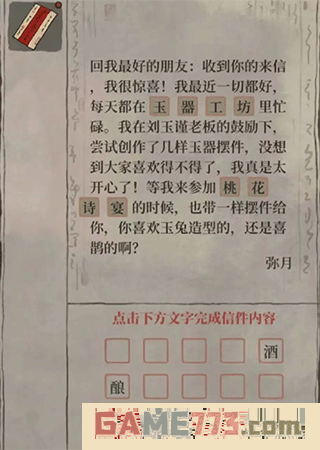 回我最好的朋友：收到你的来信
，我很惊喜！我最近一切都好，
每天都在玉器工坊里忙
碌。我在刘玉谨老板的鼓励下，
尝试创作了几样玉器摆件，没想
到大家喜欢得不得了，我真是太
开心了！等我来参加桃花
诗宴的时候，也带一样摆件给
你，你喜欢玉兔造型的，还是喜
鹊的啊？
弥月
点击下方文字完成信件内容
酒
酿
GAME773.com